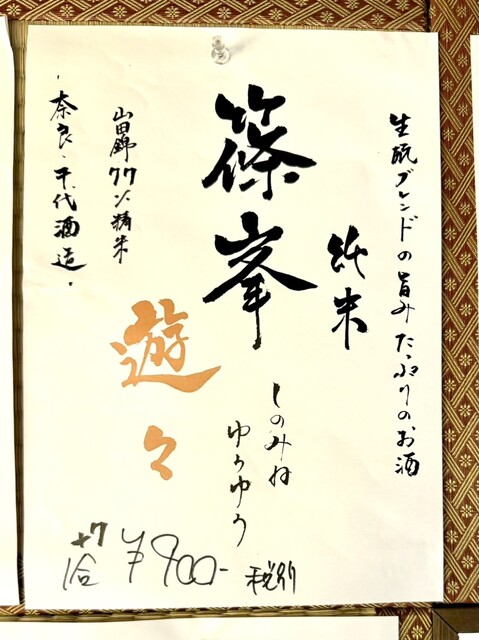 生酛ブレンドの旨みたっぷりのお酒
純米
篠峯
遊々
しのみね
ゆうゆう
山田錦77%精米
奈良・千代酒造・
+7
1合 ¥900- 税別